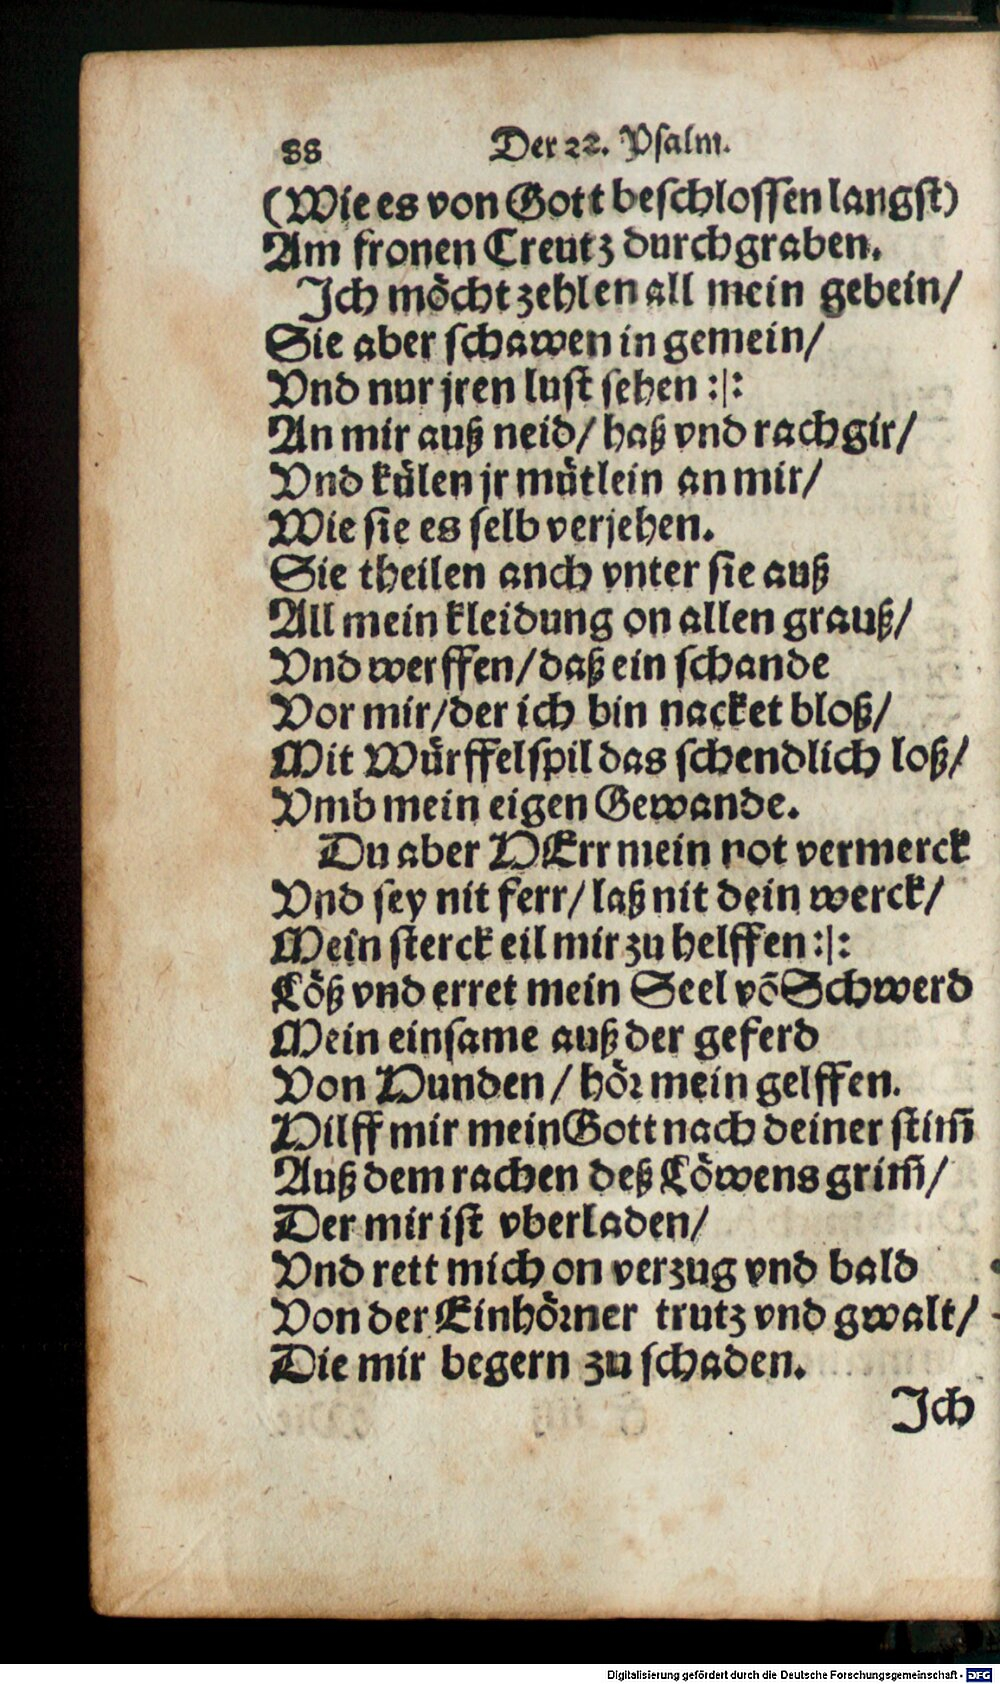 88 Der 22. Psalm.
(Wie es von Gott beschlossen langst)
Am fronen Creutz durchgraben.
Ich möcht zehlen all mein gebein/
Sie aber schawen in gemein/
Vnd nur jren lust sehen :|:
An mir auß neid/ haß vnd rachgir/
Vnd külen jr mütlein an mir/
Wie sie es selb verjehen.
Sie theilen anch vnter sie auß
All mein kleidung on allen grauß/
Vnd werffen/ daß ein schande
Vor mir/ der ich bin nacket bloß/
Mit Würffelspil das schendlich loß/
Vmb mein eigen Gewande.
Du aber HErr mein not vermerck
Vnd sey nit ferr/ laß nit dein werck/
Mein sterck eil mir zu helffen :|:
Löß vnd erret mein Seel võ Schwerd
Mein einsame auß der geferd
Von Hunden/ hör mein gelffen.
Hilff mir mein Gott nach deiner stim̃
Auß dem rachen deß Löwens grim̃/
Der mir ist vberladen/
Vnd rett mich on verzug vnd bald
Von der Einhörner trutz vnd gwalt/
Die mir begern zu schaden.
Ich
Digitalisierung gefördert durch die Deutsche Forschungsgemeinschaft - DFG